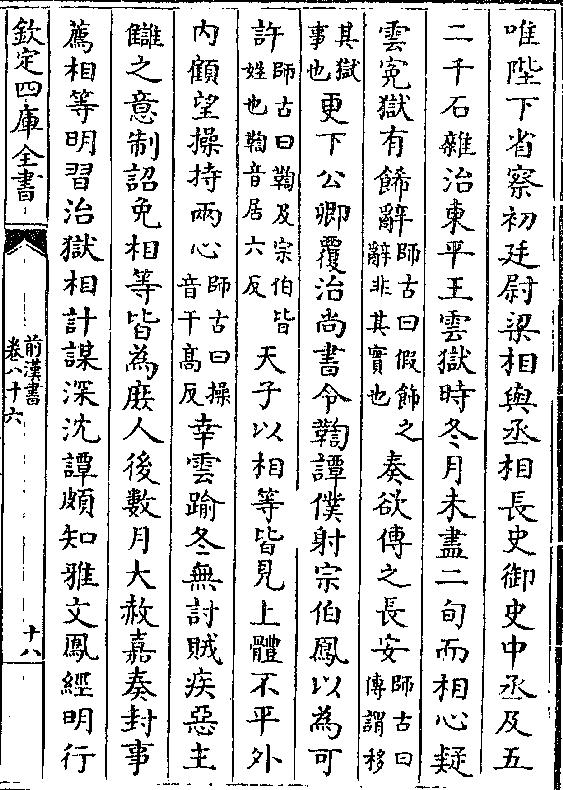 唯陛下省察初廷尉梁相與丞相長史御史中丞及五
二千石雜治東平王雲獄時冬月未盡二旬而相心疑
雲寃獄有餙辭師古曰假飾之辭非其實也奏欲傳之長安師古曰傳謂移
其獄事也更下公卿覆治尚書令鞫譚僕射宗伯鳳以為可
許師古曰鞫及宗伯皆姓也鞫音居六反天子以相等皆見上體不平外
内顧望操持兩心師古曰操音干高反幸雲踰冬無討賊疾惡主
讎之意制詔免相等皆為庻人後數月大赦嘉奏封事
薦相等明習治獄相計謀深沈譚頗知雅文鳳經明行
欽定四庫全書
前漢書
卷八十六
十八